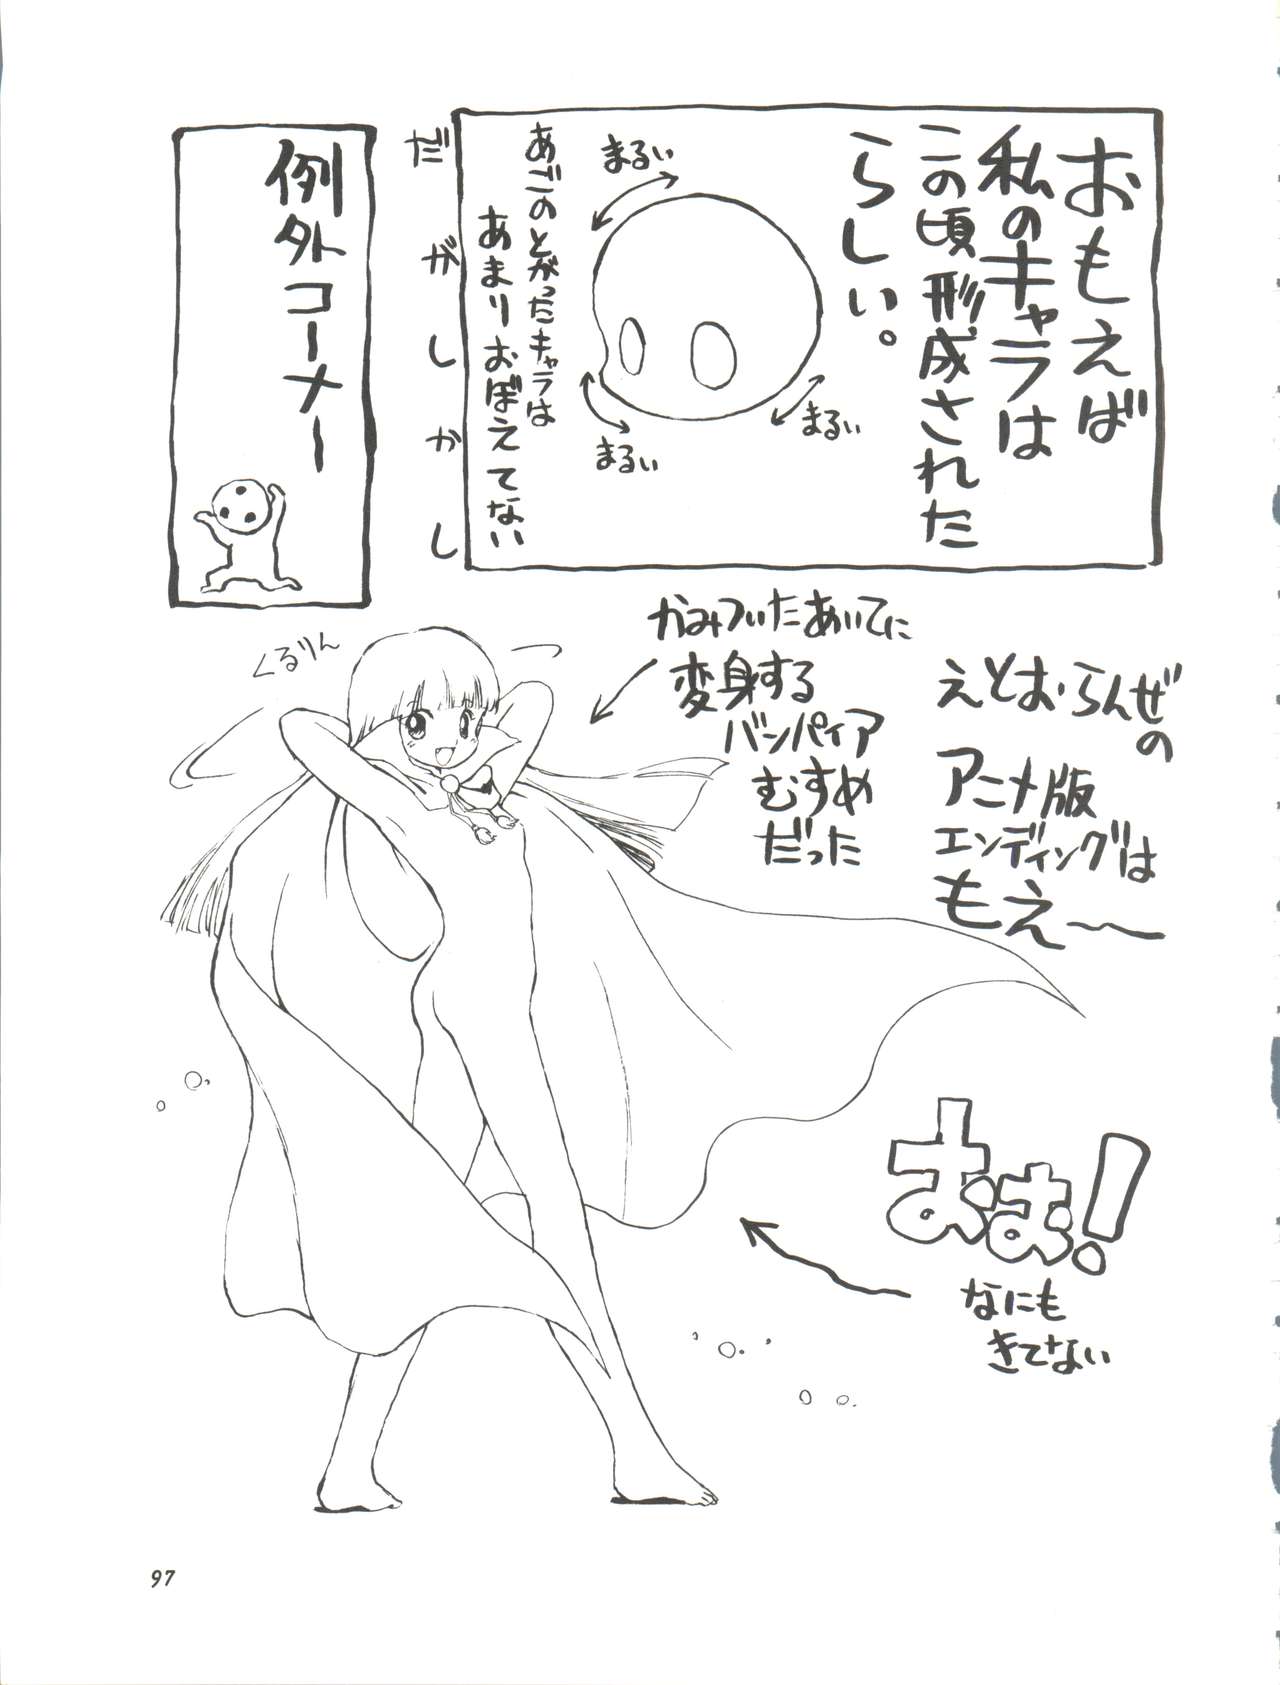 おもえば
私のキャラは
この頃形成された
らしい。
まるい
まるい
まるい
あごのとがったキャラは
あまりおぼえてない
だがしかし
例外コーナー
くるりん
かみついたあいてに
変身する
バンパイア
むすめ
だった
えとおらんぜの
アニメ版
エンディングは
もえ〜
おお!
なにも
きてない
97